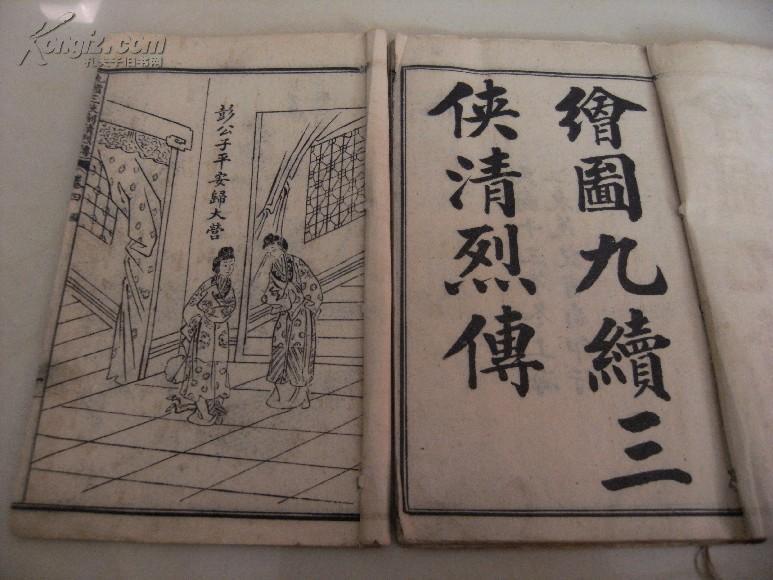 Kongfz.com
孔夫子旧书网
繪圖九續三
俠清烈傳
彭公子平安歸大營
卷四